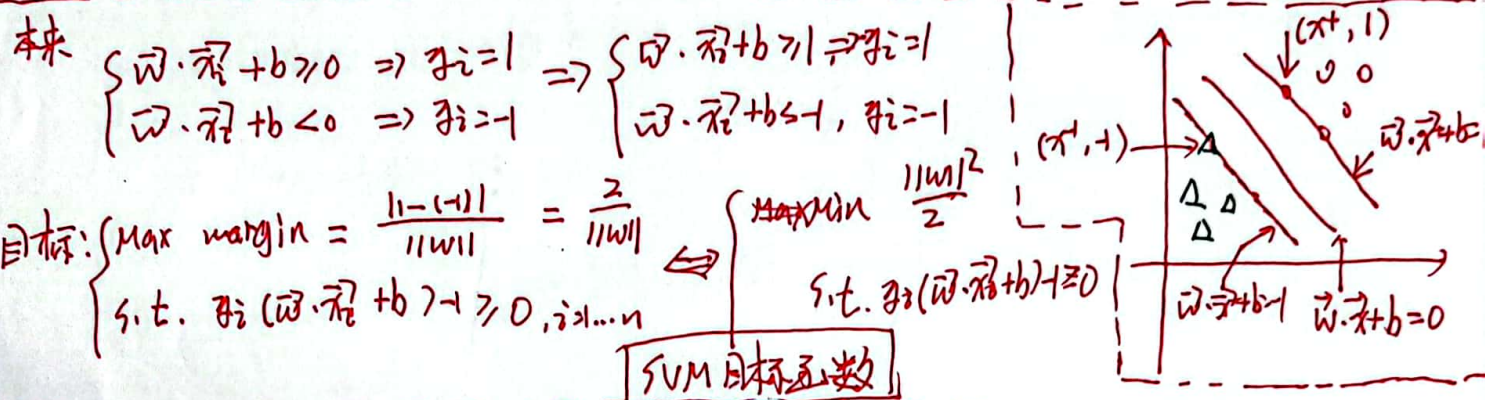 本来 { w⃗·x⃗i+b≥0 ⇒ yi=1 ⇒ { w⃗·x⃗i+b≥1 ⇒ yi=1
w⃗·x⃗i+b<0 ⇒ yi=-1 w⃗·x⃗i+b≤-1, yi=-1
目标: { Max margin = |1-(-1)| / ||w|| = 2 / ||w|| ⇔ { Min ||w||² / 2
s.t. yi(w⃗·x⃗i+b)-1≥0, i=1...n s.t. yi(w⃗·x⃗i+b)-1≥0
SVM目标函数
(x⁺, 1)
w⃗·x⃗+b=
(x⁻, -1)
w⃗·x⃗+b=-1 w⃗·x⃗+b=0